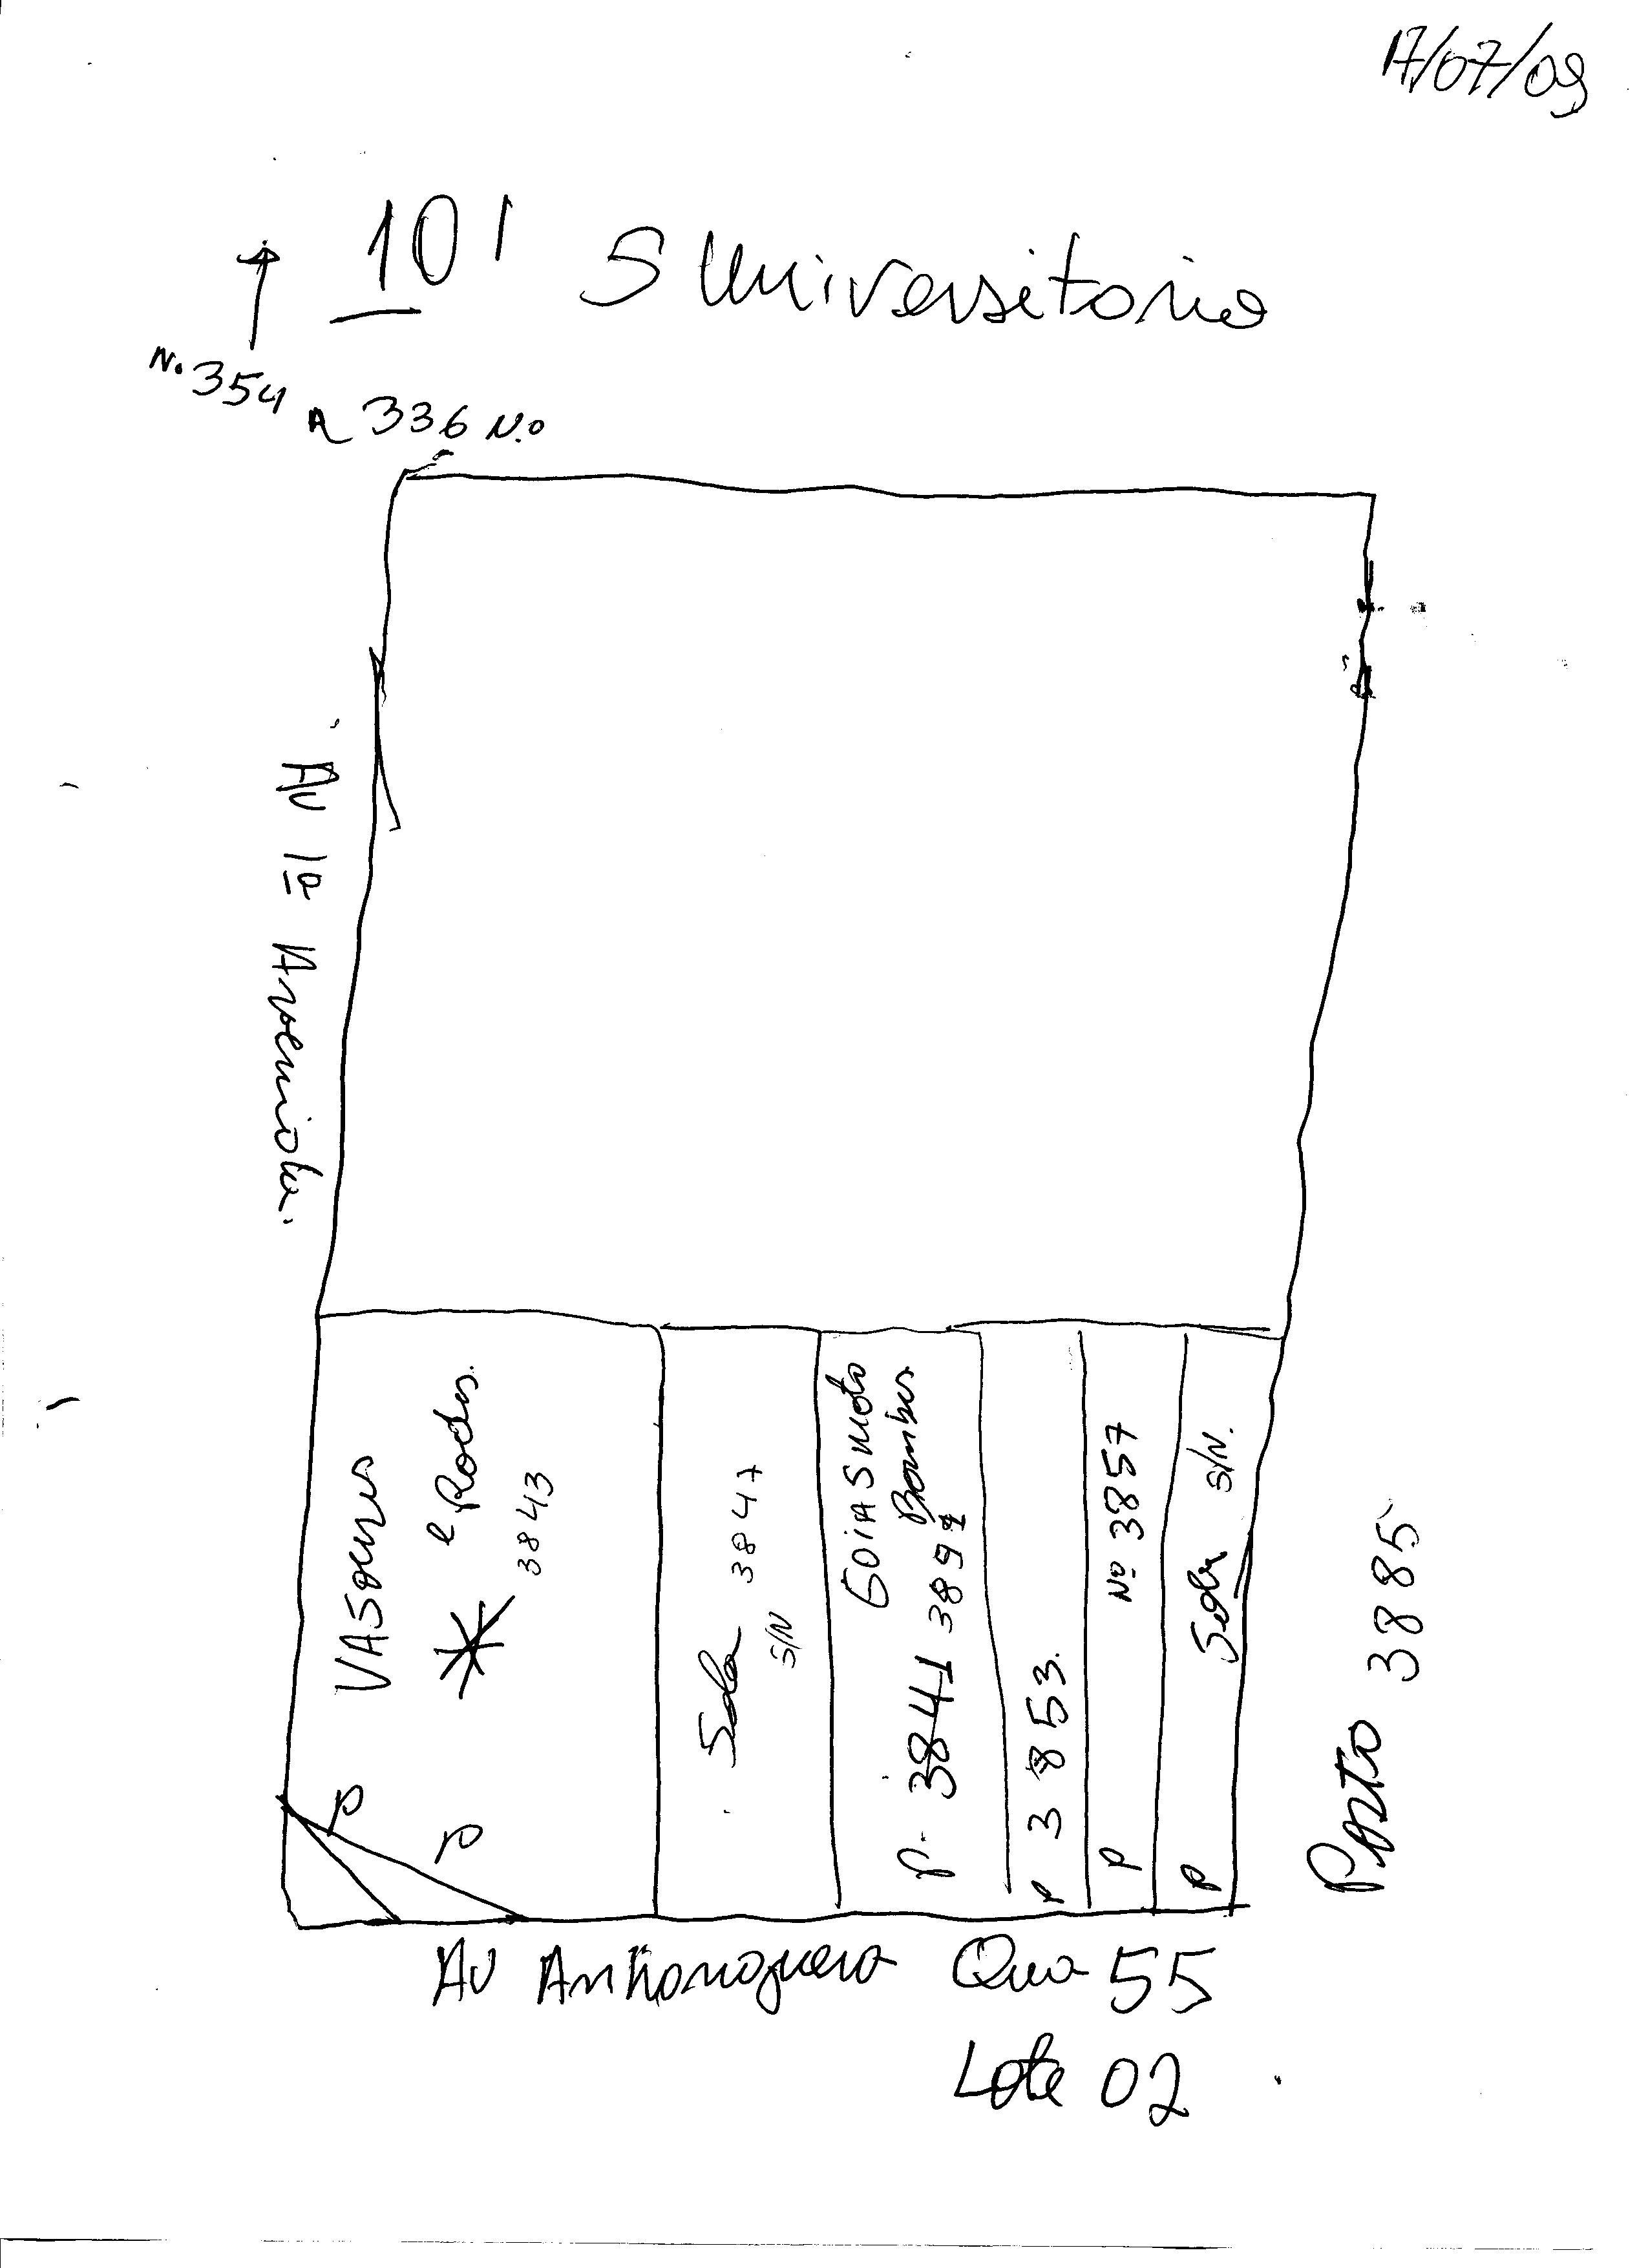 17/07/09
101 S Universitorio
N. 354 A 336 N.o
AV 1ª Avenida.
VASOURAS
e Rodos.
3843
Sala 3847
S/N
GOIAS Moto
Bombas.
P. 3841
P 3853.
P Nº 3857
P Sala S/N.
Porto 3885
AV Anhanguera Qua 55
Lote 02
P
P